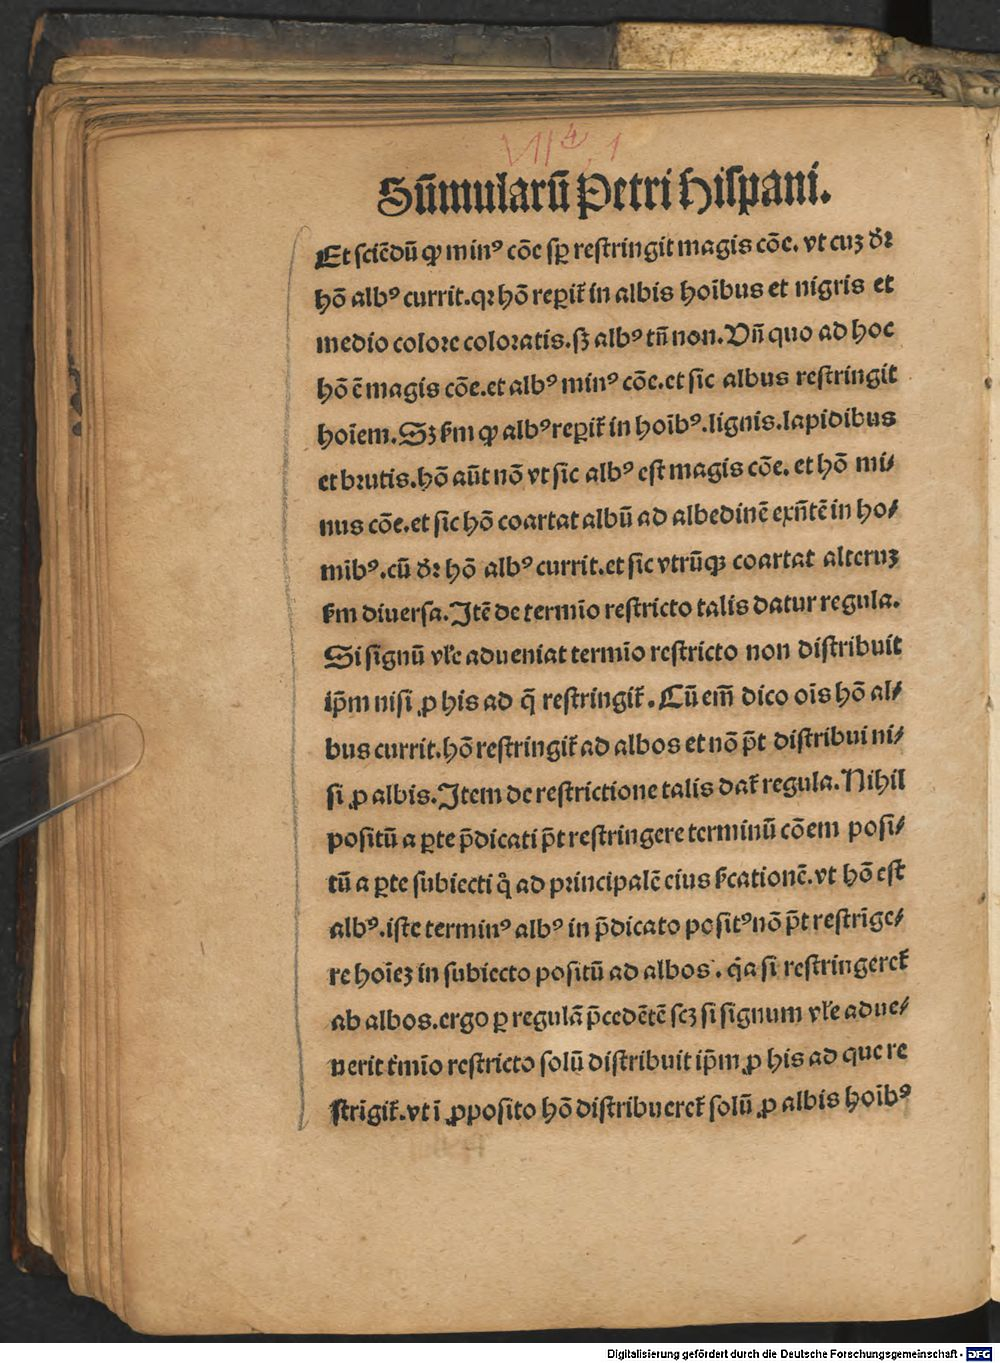 Sūmularū Petri Hiſpani.
Et ſciēdū ꝙ minꝰ cōe ſꝑ reſtringit magis cōe. vt cuꝫ d̄ꝛ
hō albꝰ currit.qꝛ hō reꝑit̄ in albis hoībus et nigris et
medio coloꝛe coloꝛatis.ſꝫ albꝰ tn̄ non.Vn̄ quo ad hoc
hō ē magis cōe.et albꝰ minꝰ cōe.et ſic albus reſtringit
hoīem.Sꝫ ẜm ꝙ albꝰ reꝑit̄ in hoībꝰ.lignis.lapidibus
et bꝛutis.hō aūt nō vt ſic albꝰ eſt magis cōe. et hō mi⸗
nus cōe.et ſic hō coartat albū ad albedinē exn̄tē in ho⸗
mibꝰ.cū d̄ꝛ hō albꝰ currit.et ſic vtrūqꝫ coartat alteruꝫ
ẜm diuerſa.Itē de termīo reſtricto talis datur regula.
Si ſignū vłe adueniat termīo reſtricto non diſtribuit
ip̄m niſi ꝓ his ad q̄ reſtringit̄.Cū em̄ dico oīs hō al⸗
bus currit.hō reſtringit̄ ad albos et nō p̄t diſtribui ni⸗
ſi ꝓ albis.Item de reſtrictione talis dat̄ regula.Nihil
poſitū a ꝑte p̄dicati p̄t reſtringere terminū cōem poſi⸗
tū a ꝑte ſubiecti qͣ̊ ad pꝛincipalē eius ẜcationē.vt hō eſt
albꝰ.iſte terminꝰ albꝰ in p̄dicato poſitꝰ nō p̄t reſtrīge⸗
re hoīeꝫ in ſubiecto poſitū ad albos. qͥa ſi reſtringeret̄
ab albos.ergo ꝑ regulā p̄cedētē ſcꝫ ſi ſignum vłe adue⸗
nerit t̄mīo reſtricto ſolū diſtribuit ip̄m ꝓ his ad que re
ſtrīgit̄.vt ī ꝓpoſito hō diſtribueret̄ ſolū ꝓ albis hoībꝰ
Digitalisierung gefördert durch die Deutsche Forschungsgemeinschaft - DFG